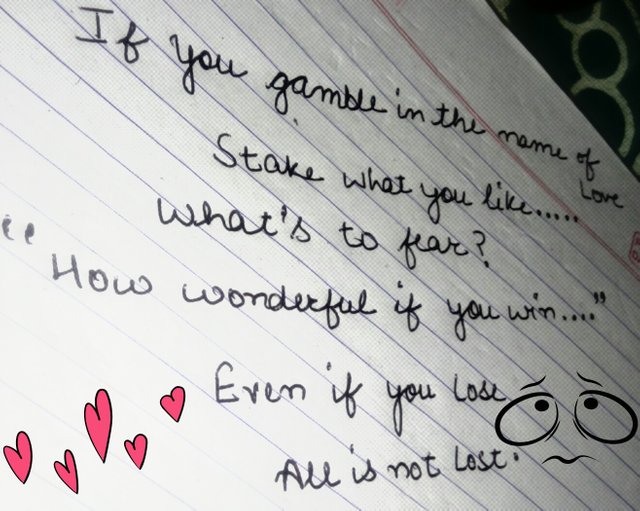 If you gamble in the name of Love
Stake what you like.....
What's to fear?
"How wonderful if you win...."
Even if you lose
All is not lost.